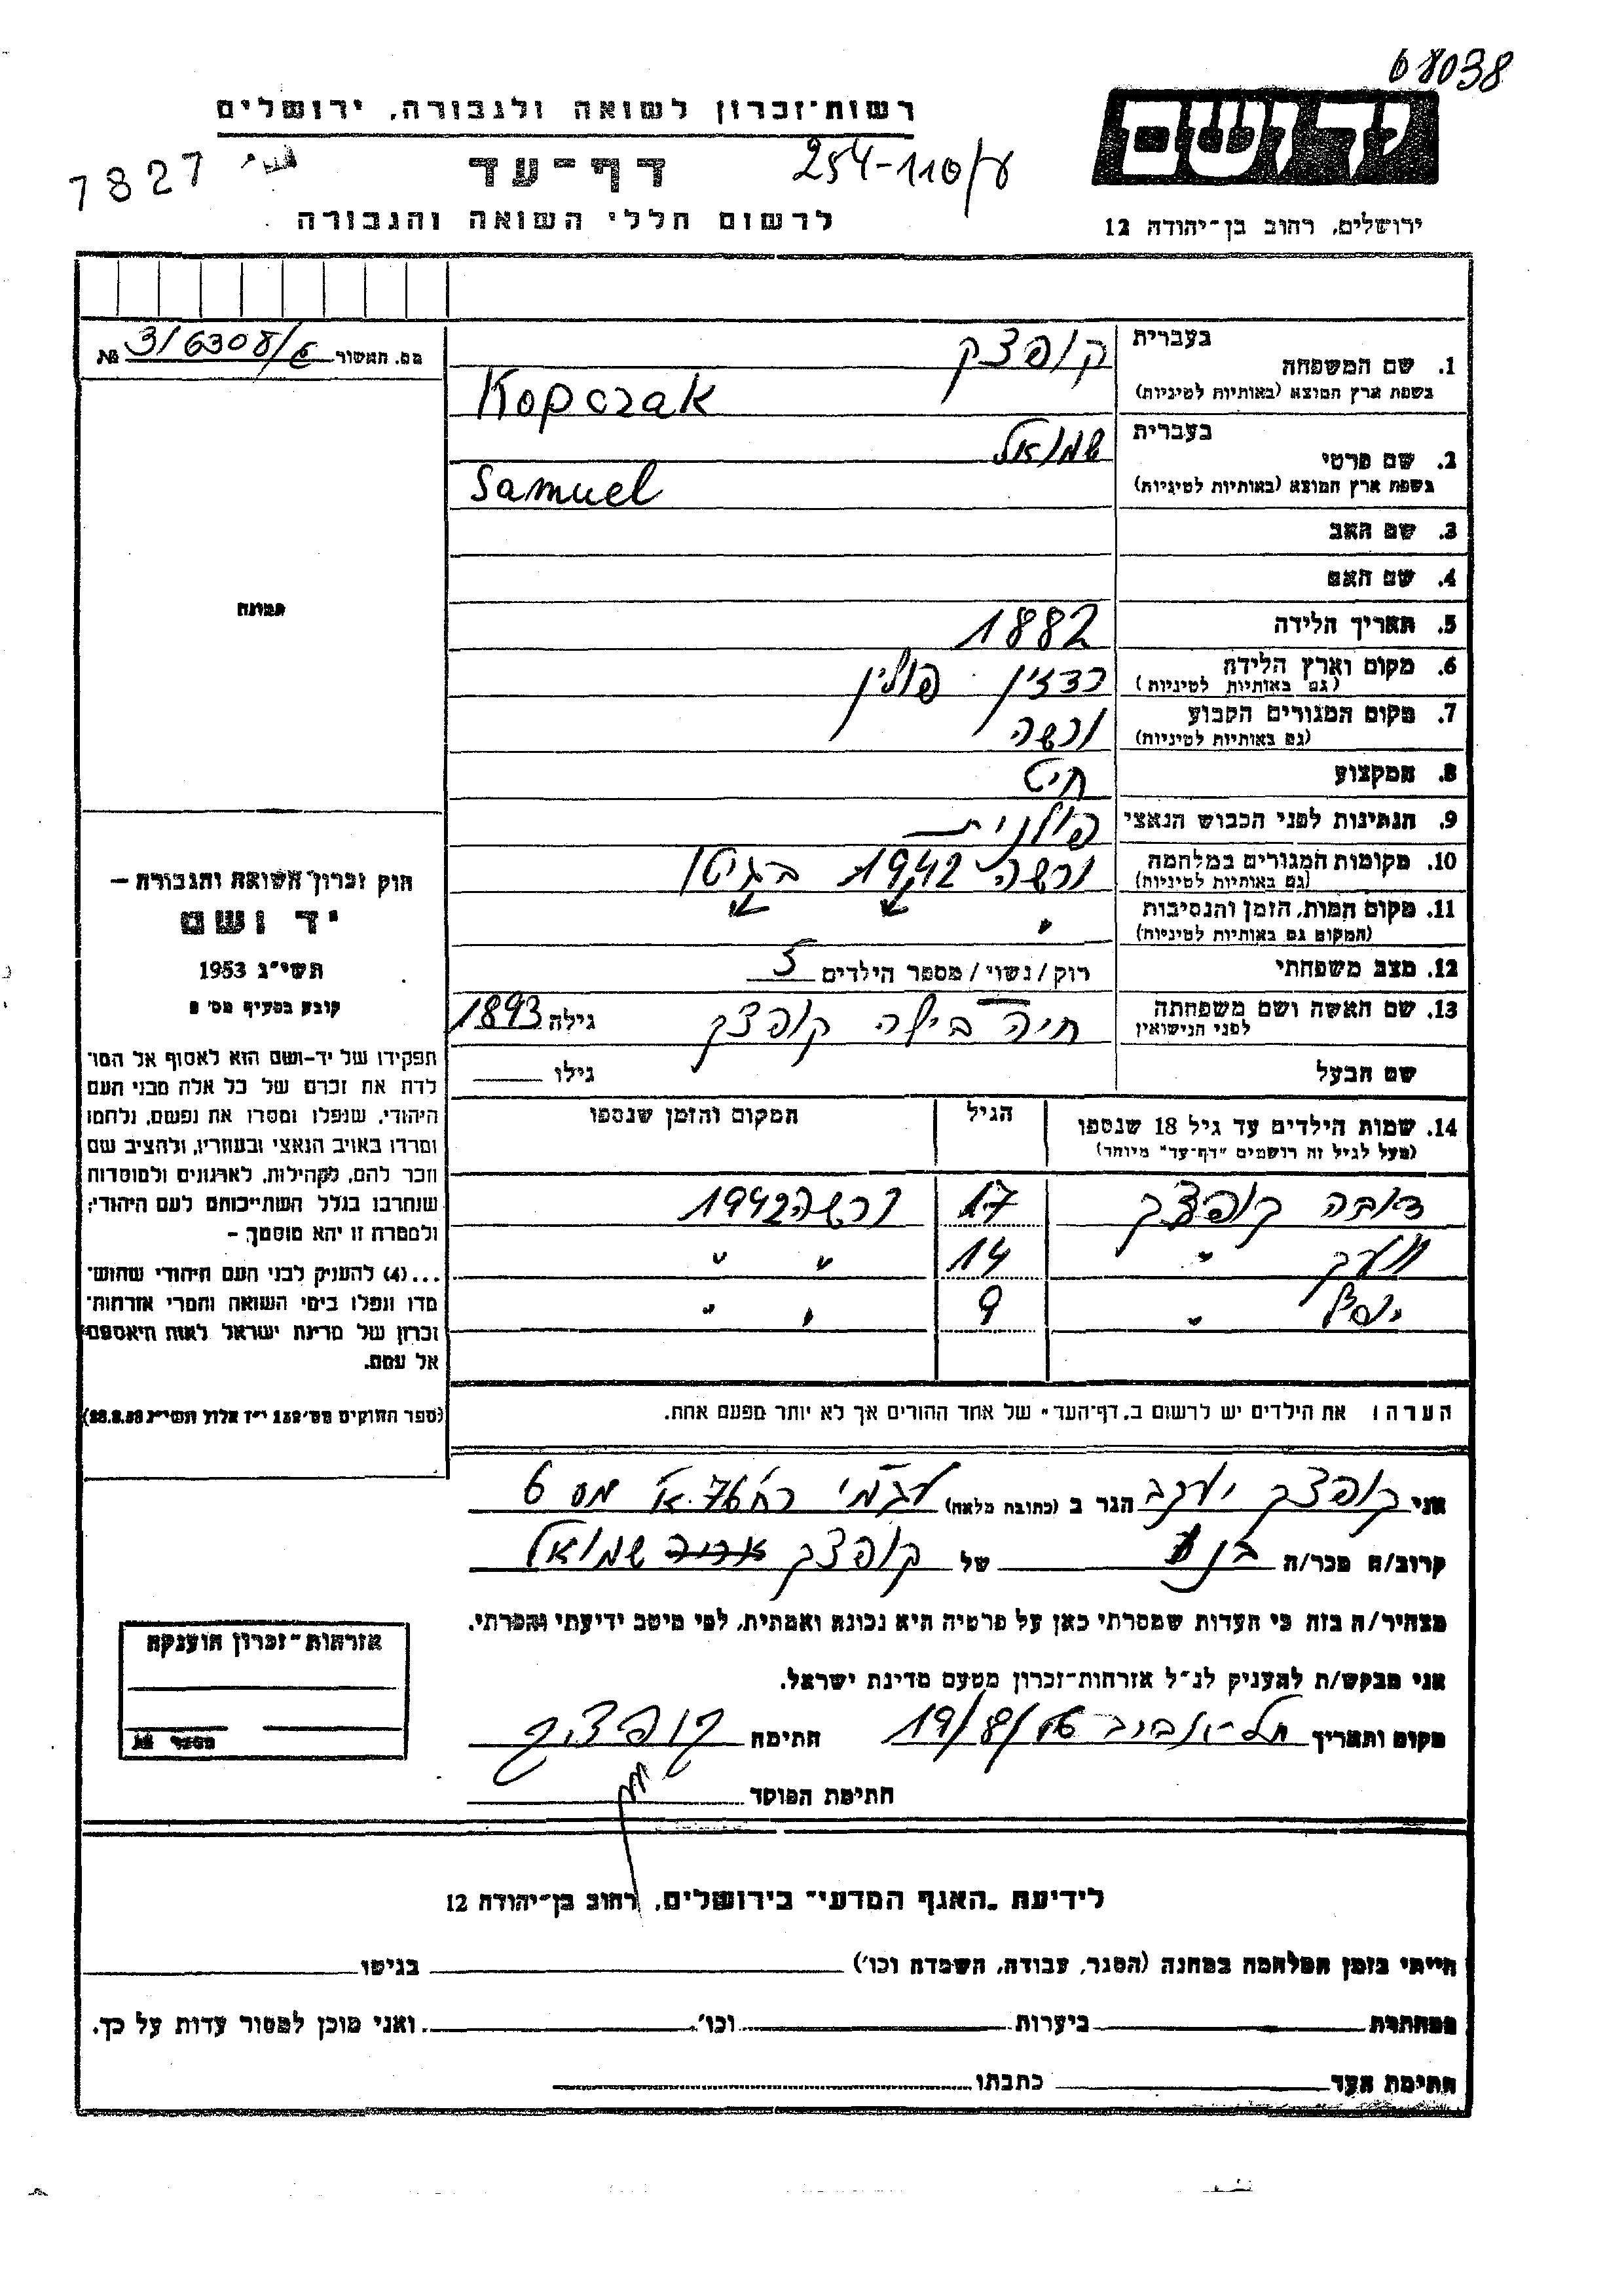 68038
רשות-זכרון לשואה ולגבורה, ירושלים
יד ושם
דף-עד
254-110/ע
7827
לרשום חללי השואה והגבורה
ירושלים, רחוב בן-יהודה 12
מס. האשור 316308/ № 
בעברית
1. שם המשפחה
קופצק
בשפת ארץ המוצא (באותיות לטיניות)
Kopczak
בעברית
2. שם פרטי
שמואל
בשפת ארץ המוצא (באותיות לטיניות)
Samuel
3. שם האב
4. שם האם
5. תאריך הלידה 1882
6. מקום וארץ הלידה
(גם באותיות לטיניות)
רדזין פולין
7. מקום המגורים הקבוע
(גם באותיות לטיניות)
ורשה
8. המקצוע חייט
9. הנתינות לפני הכבוש הנאצי פולנית
10. מקומות המגורים במלחמה
(גם באותיות לטיניות)
ורשה 1942 בגיטו
11. מקום המות, הזמן והנסיבות
(המקום גם באותיות לטיניות)
"
12. מצב משפחתי רוק/נשוי/מספר הילדים 5
13. שם האשה ושם משפחתה
לפני הנישואין
חיה בילה קופצק גילה 1893
שם הבעל גילו
14. שמות הילדים עד גיל 18 שנספו הגיל המקום והזמן שנספו
(מעל לגיל זה רושמים "דף-עד" מיוחד)
קופצק 17 ורשה 1942
" 14 " "
" 9 " "
הערה: את הילדים יש לרשום ב"דף-העד" של אחד ההורים אך לא יותר מפעם אחת.
תמונה
חוק זכרון השואה והגבורה –
יד ושם
תשי"ג 1953
קובע בסעיף מס' 2
תפקידו של יד-ושם הוא לאסוף אל המו־
לדת את זכרם של כל אלה מבני העם
היהודי, שנפלו ומסרו את נפשם, נלחמו
ומרדו באויב הנאצי ובעוזריו, ולהציב שם
וזכר להם, לקהילות, לארגונים ולמוסדות
שנחרבו בגלל השתייכותם לעם היהודי;
ולמטרה זו יהא מוסמך –
...(4) להעניק לבני העם היהודי שהוש־
מדו ונפלו בימי השואה והמרי אזרחות־
זכרון של מדינת ישראל לאות היאספם
אל עמם.
(ספר החוקים מס' 132 י"ז אלול תשי"ג 28.8.53)
אני קופצק יעקב הגר ב (כתובת מלאה) מס 6
קרוב/ה מכר/ה בן של קופצק שמואל
מצהיר/ה בזה כי העדות שמסרתי כאן על פרטיה היא נכונה ואמתית, לפי מיטב ידיעתי והכרתי.
אני מבקש/ת להעניק לנ"ל אזרחות-זכרון מטעם מדינת ישראל.
מקום ותאריך תל אביב 19/8/ חתימה קופצק
חתימת הפוסד
אזרחות-זכרון הוענקה
מספר №
לידיעת "האגף המדעי" בירושלים, רחוב בן-יהודה 12
הייתי בזמן המלחמה במחנה (הסגר, עבודה, השמדה וכו') בגיטו
במחתרת ביערות וכו'. ואני מוכן למסור עדות על כך.
חתימת העד כתבתו